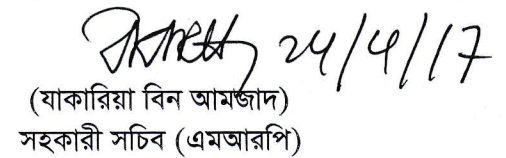 24/4/17
(যাকারিয়া বিন আমজাদ)
সহকারী সচিব (এমআরপি)